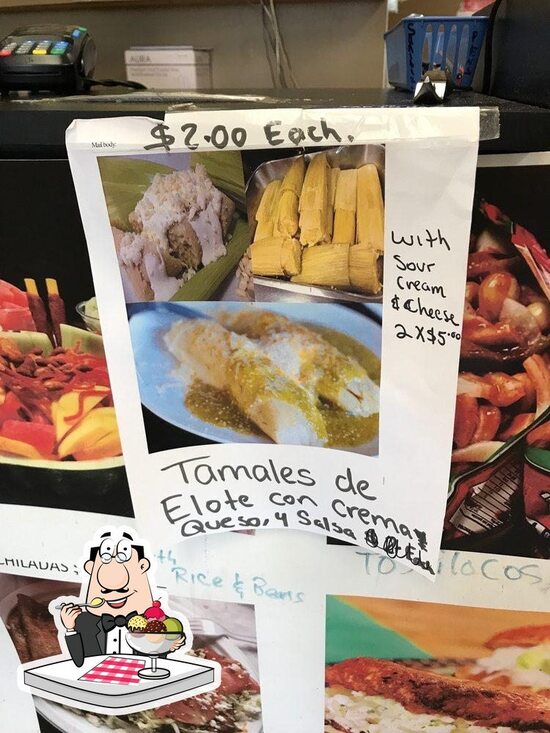 AURA
Mail body:
$2.00 Each.
With
Sour
Cream
& Cheese
2X$5.00
Tamales de
Elote con crema
Queso, y Salsa
CHILADAS:
Rice & Beans